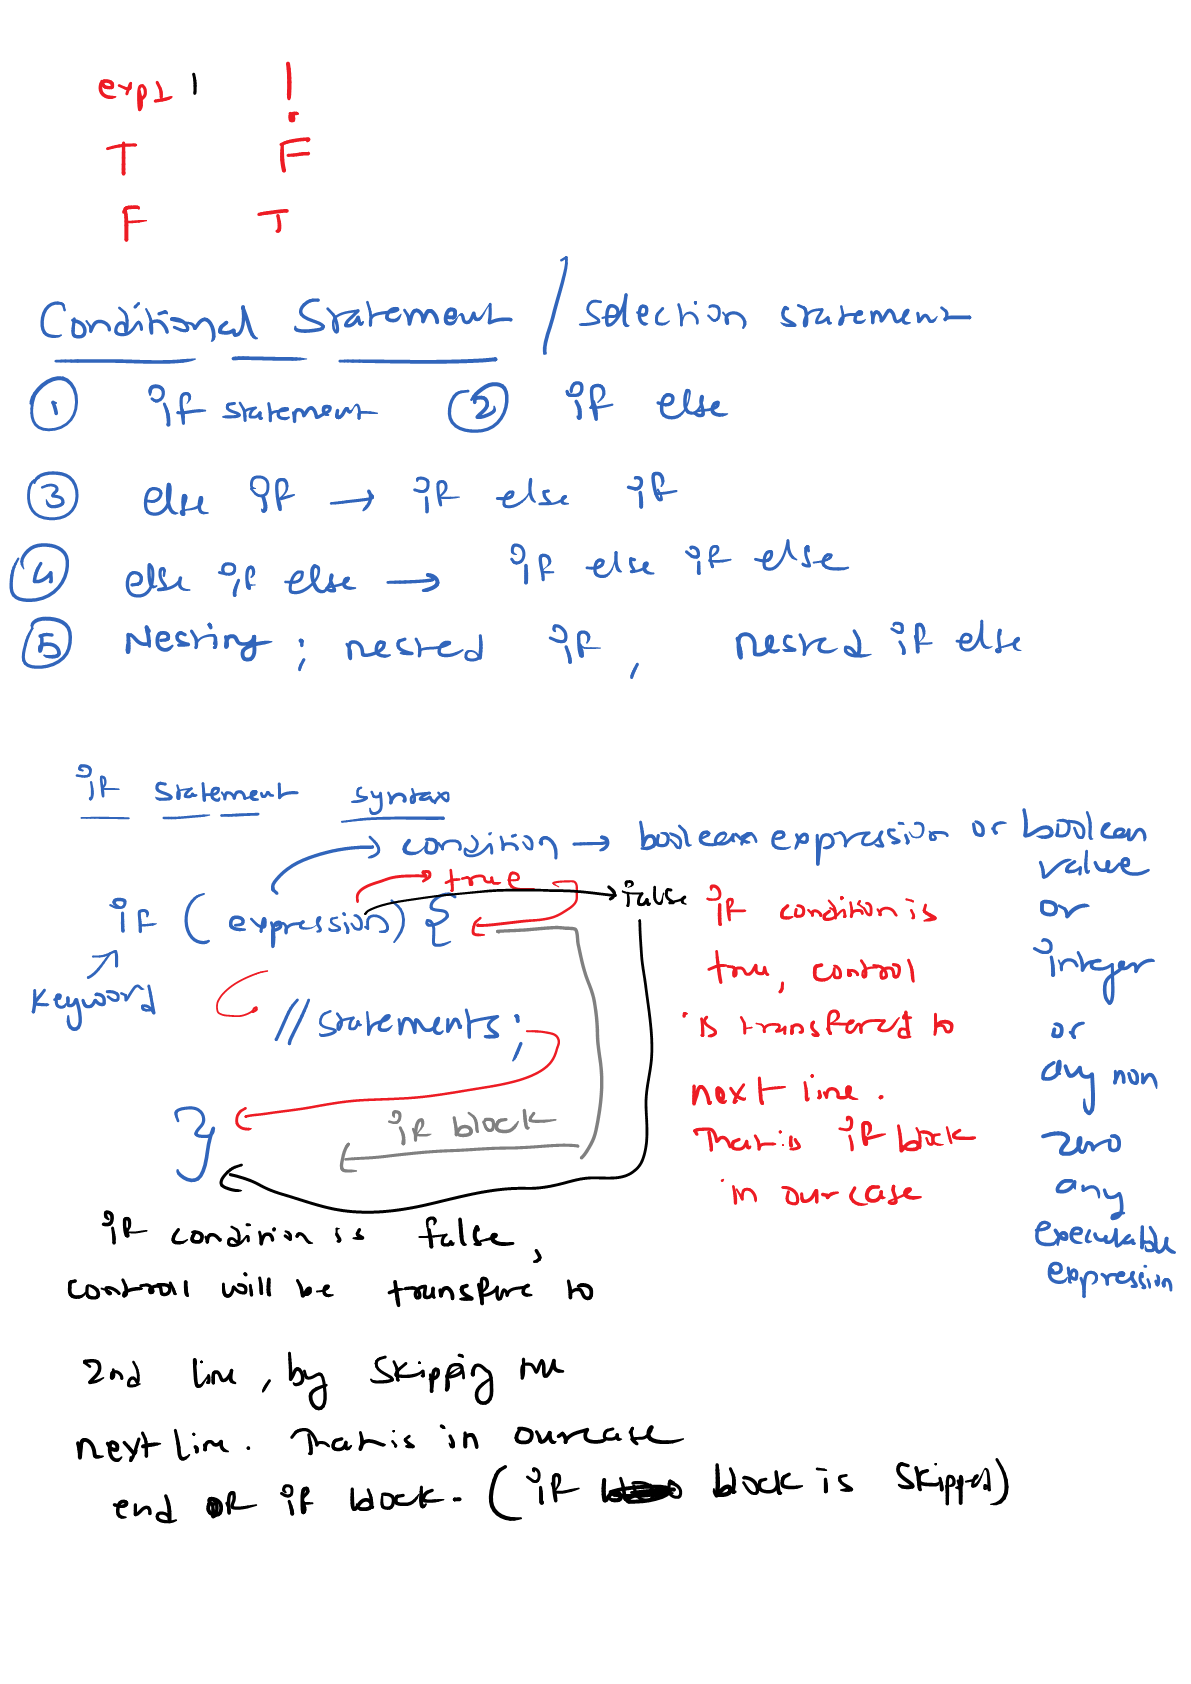 exp1 | !
T F
F T
Conditional Statement / selection statement
① if statement ② if else
③ else if → if else if
④ else if else → if else if else
⑤ Nesting ; nested if , nested if else
if statement syntax
→ condition → boolean expression or boolean
value
or
integer
or
any non
zero
any
executable
expression
true
false
if ( expression ) {
keyword
// statements ;
if block
}
if condition is
true, control
is transfered to
next line.
That is if block
in our case
if condition is false,
control will be transfire to
2nd line, by skipping the
next line. That is in our case
end of if block. (if block is skipped)